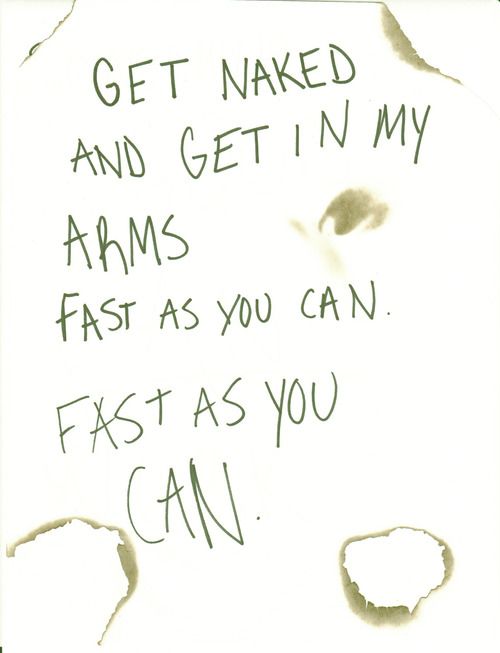 GET NAKED
AND GET IN MY
ARMS
FAST AS YOU CAN.
FAST AS YOU
CAN.